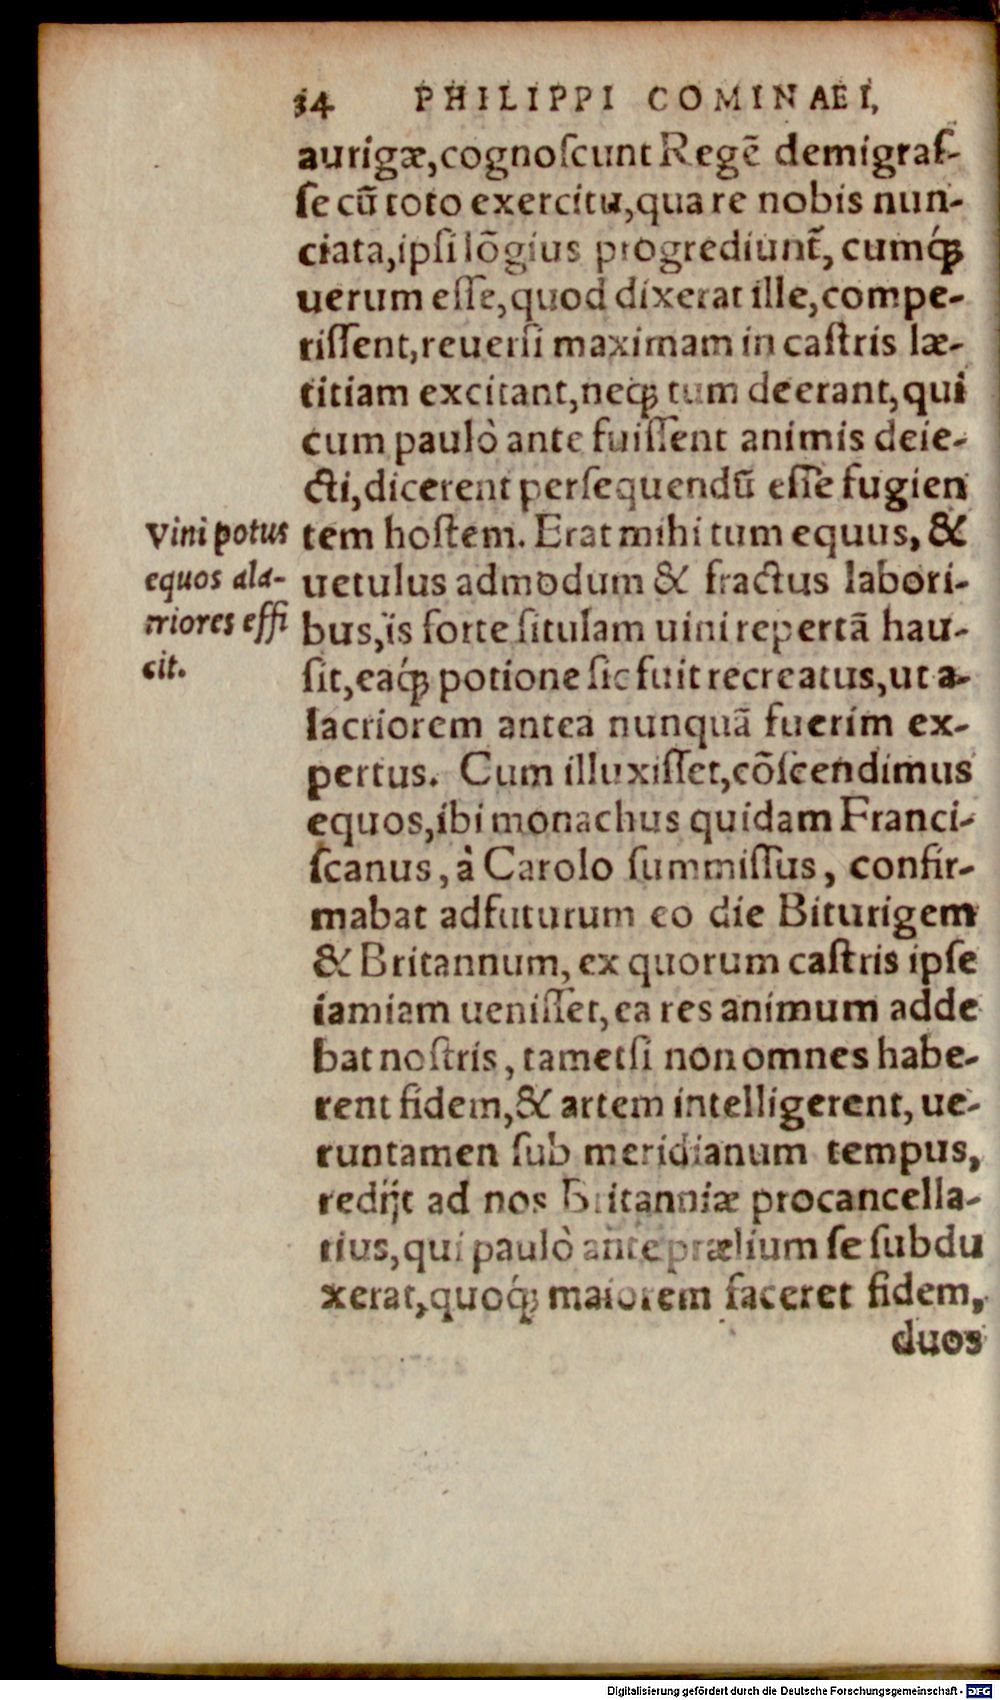 34 PHILIPPI COMINAEI,
aurigæ,cognoſcunt Regẽ demigraſ-
ſe cũ toto exercitu,qua re nobis nun-
ciata,ipſi lõgius progrediunt̃, cumq́ꝫ
uerum eſſe,quod dixerat ille,compe-
riſſent,reuerſi maximam in caſtris læ-
titiam excitant,neqꝫ tum deerant,qui
cum paulò ante fuiſſent animis deie-
cti,dicerent perſequendũ eſſe fugien
tem hoſtem. Erat mihi tum equus, &
uetulus admodum & fractus labori-
bus,is forte ſitulam uini repertã hau-
ſit,eaq́ꝫ potione ſic fuit recreatus,ut a-
lacriorem antea nunquã fuerim ex-
pertus. Cum illuxiſſet,cõſcendimus
equos,ibi monachus quidam Franci-
ſcanus, à Carolo ſummiſſus, confir-
mabat adfuturum eo die Biturigem
& Britannum, ex quorum caſtris ipſe
iamiam ueniſſet, ea res animum adde
bat noſtris, tametſi non omnes habe-
rent fidem,& artem intelligerent, ue-
runtamen ſub meridianum tempus,
redijt ad nos Britanniæ procancella-
rius,qui paulò ante prælium ſe ſubdu
xerat,quoq́ꝫ maiorem faceret fidem,
duos
Vini potus
equos ala-
criores effi
cit.
Digitalisierung gefördert durch die Deutsche Forschungsgemeinschaft - DFG